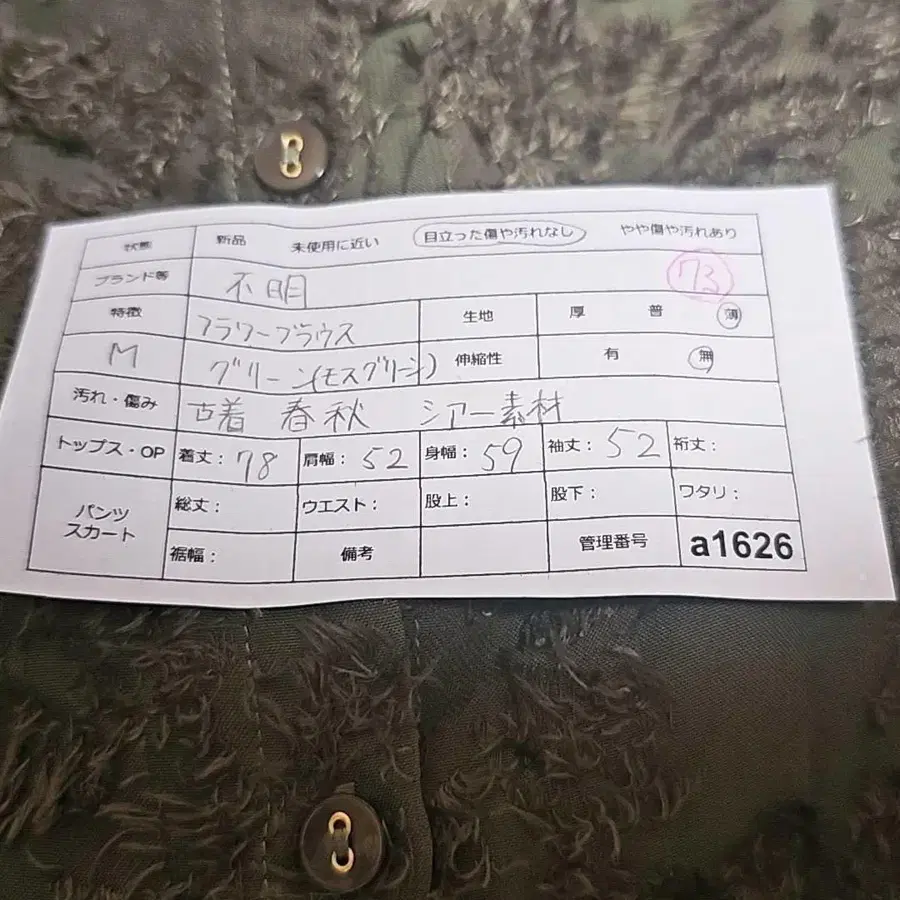 状態 新品 未使用に近い 目立った傷や汚れなし やや傷や汚れあり
ブランド等 不明 73
特徴 フラワーブラウス 生地 厚 普 薄
M グリーン(モスグリーン) 伸縮性 有 無
汚れ・傷み 古着 春秋 シアー素材
トップス・OP 着丈:78 肩幅:52 身幅:59 袖丈:52 裄丈:
パンツ スカート 総丈: ウエスト: 股上: 股下: ワタリ:
裾幅: 備考 管理番号 a1626